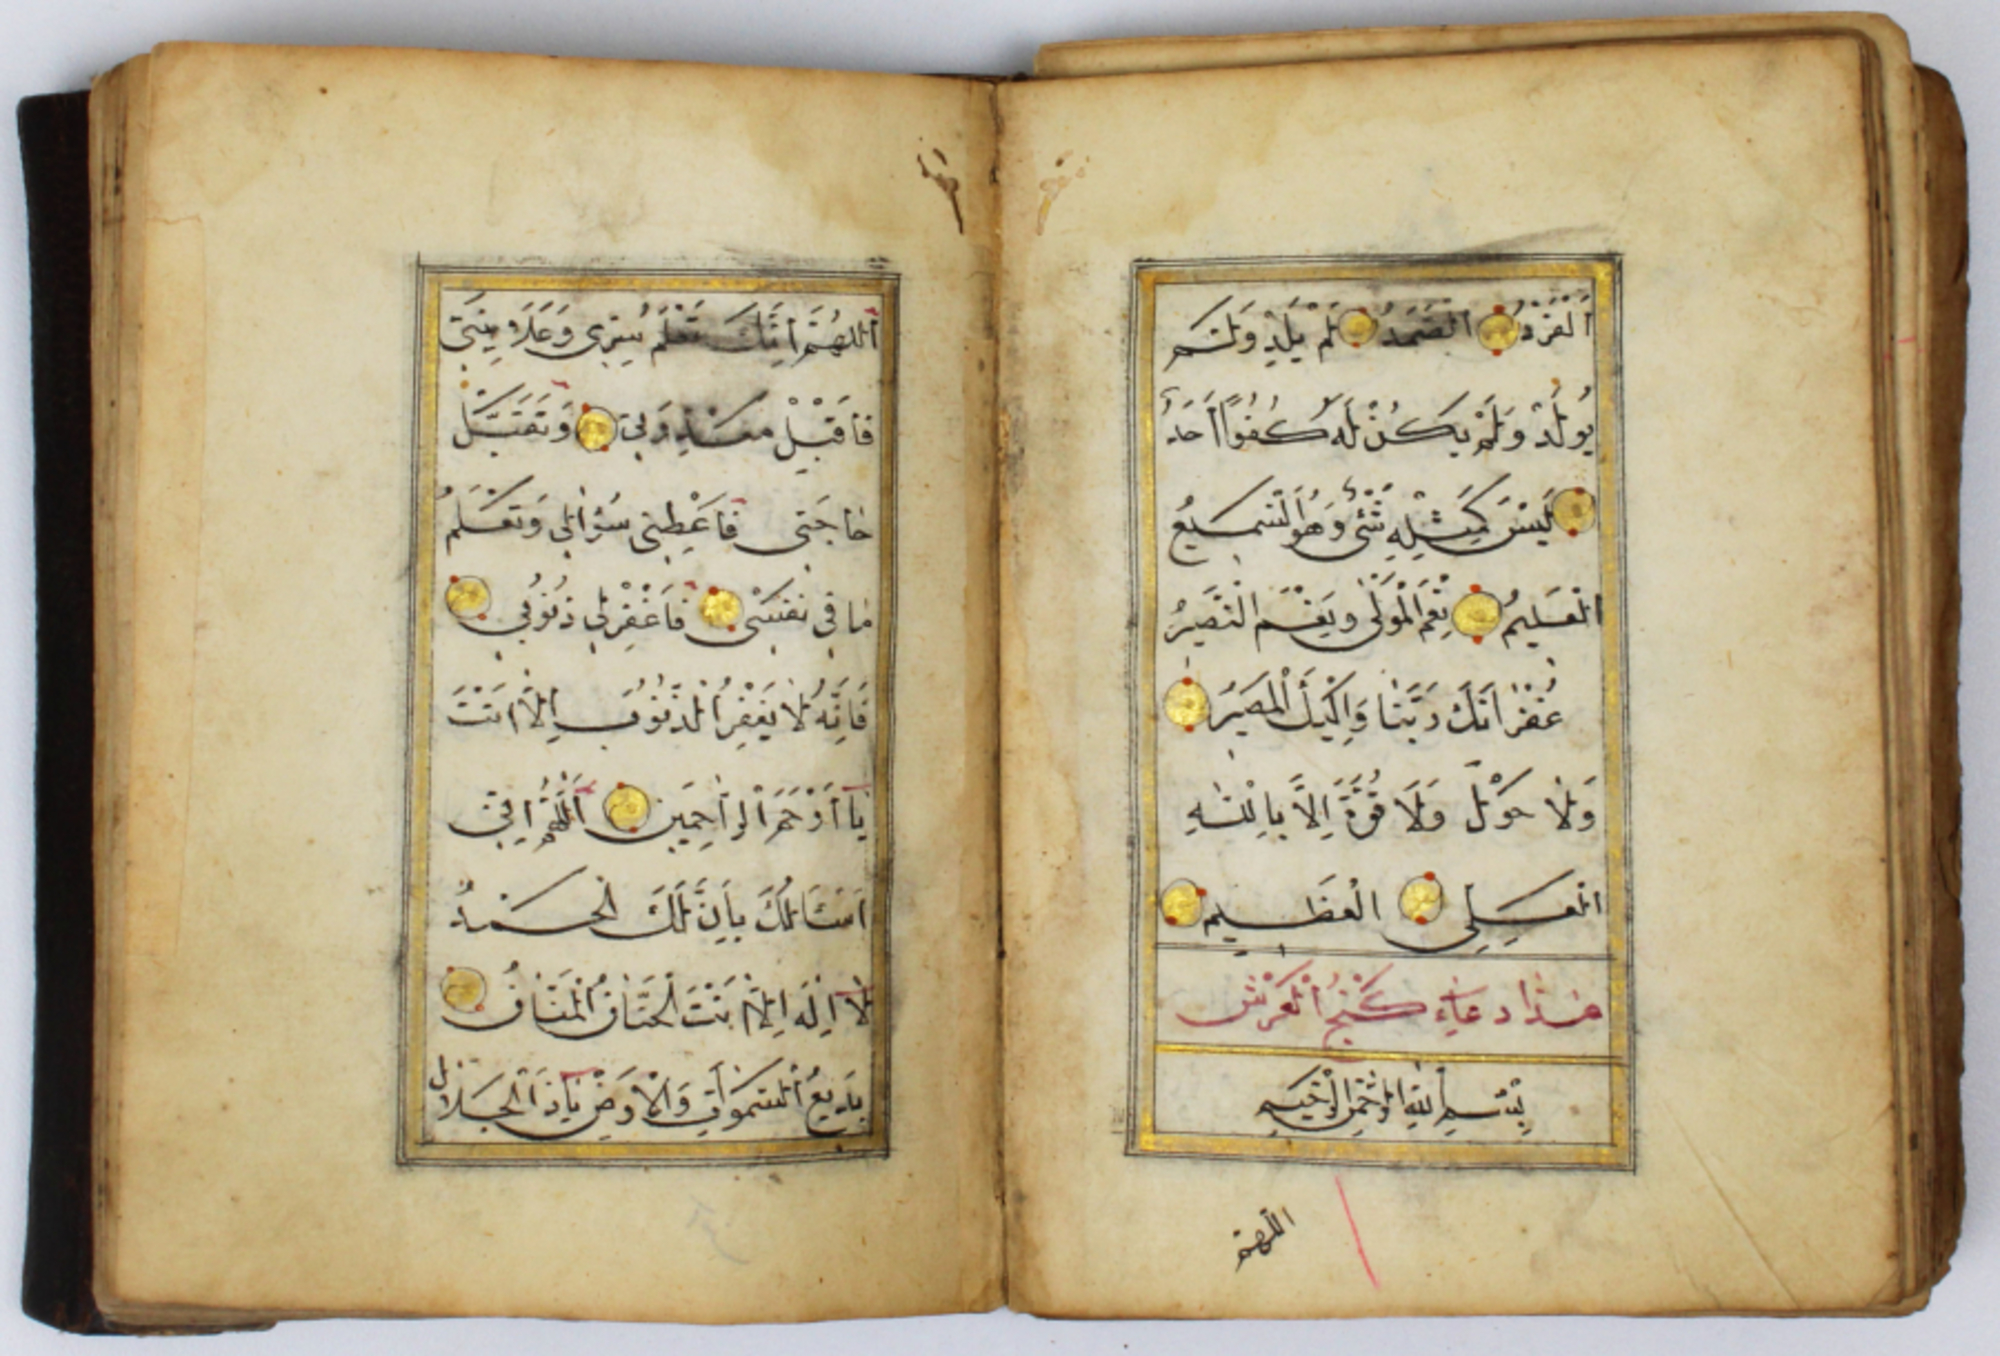 اَلْفَرْدُ الصَّمَدُ لَمْ يَلِدْ وَلَمْ
يُولَدْ وَلَمْ يَكُنْ لَهُ كُفُوًا اَحَدٌ
لَيْسَ كَمِثْلِهِ شَيْءٌ وَهُوَ السَّمِيعُ
الْعَلِيمُ نِعْمَ الْمَوْلٰى وَنِعْمَ النَّصِيرُ
غُفْرَانَكَ رَبَّنَا وَاِلَيْكَ الْمَصِيرُ
وَلَا حَوْلَ وَلَا قُوَّةَ اِلَّا بِاللّٰهِ
الْعَلِيِّ الْعَظِيمِ
هٰذَا دُعَاءِ كَنْجُ الْعَرْشِ
بِسْمِ اللّٰهِ الرَّحْمٰنِ الرَّحِيمِ
اللهم
اَللّٰهُمَّ اِنَّكَ تَعْلَمُ سِرِّي وَعَلَانِيَتِي
فَاقْبَلْ مَعْذِرَتِي وَتَقَبَّلْ
حَاجَتِي فَاَعْطِنِي سُؤَالِي وَتَعْلَمُ
مَا فِي نَفْسِي فَاغْفِرْلِي ذُنُوبِي
فَاِنَّهُ لَا يَغْفِرُ الذُّنُوبَ اِلَّا اَنْتَ
يَا اَرْحَمَ الرَّاحِمِينَ اَللّٰهُمَّ اِنِّي
اَسْئَلُكَ بِاَنَّ لَكَ الْحَمْدُ
لَا اِلٰهَ اِلَّا اَنْتَ الْحَنَّانُ الْمَنَّانُ
بَدِيعُ السَّمٰوَاتِ وَالْاَرْضِ يَا ذَا الْجَلَالِ